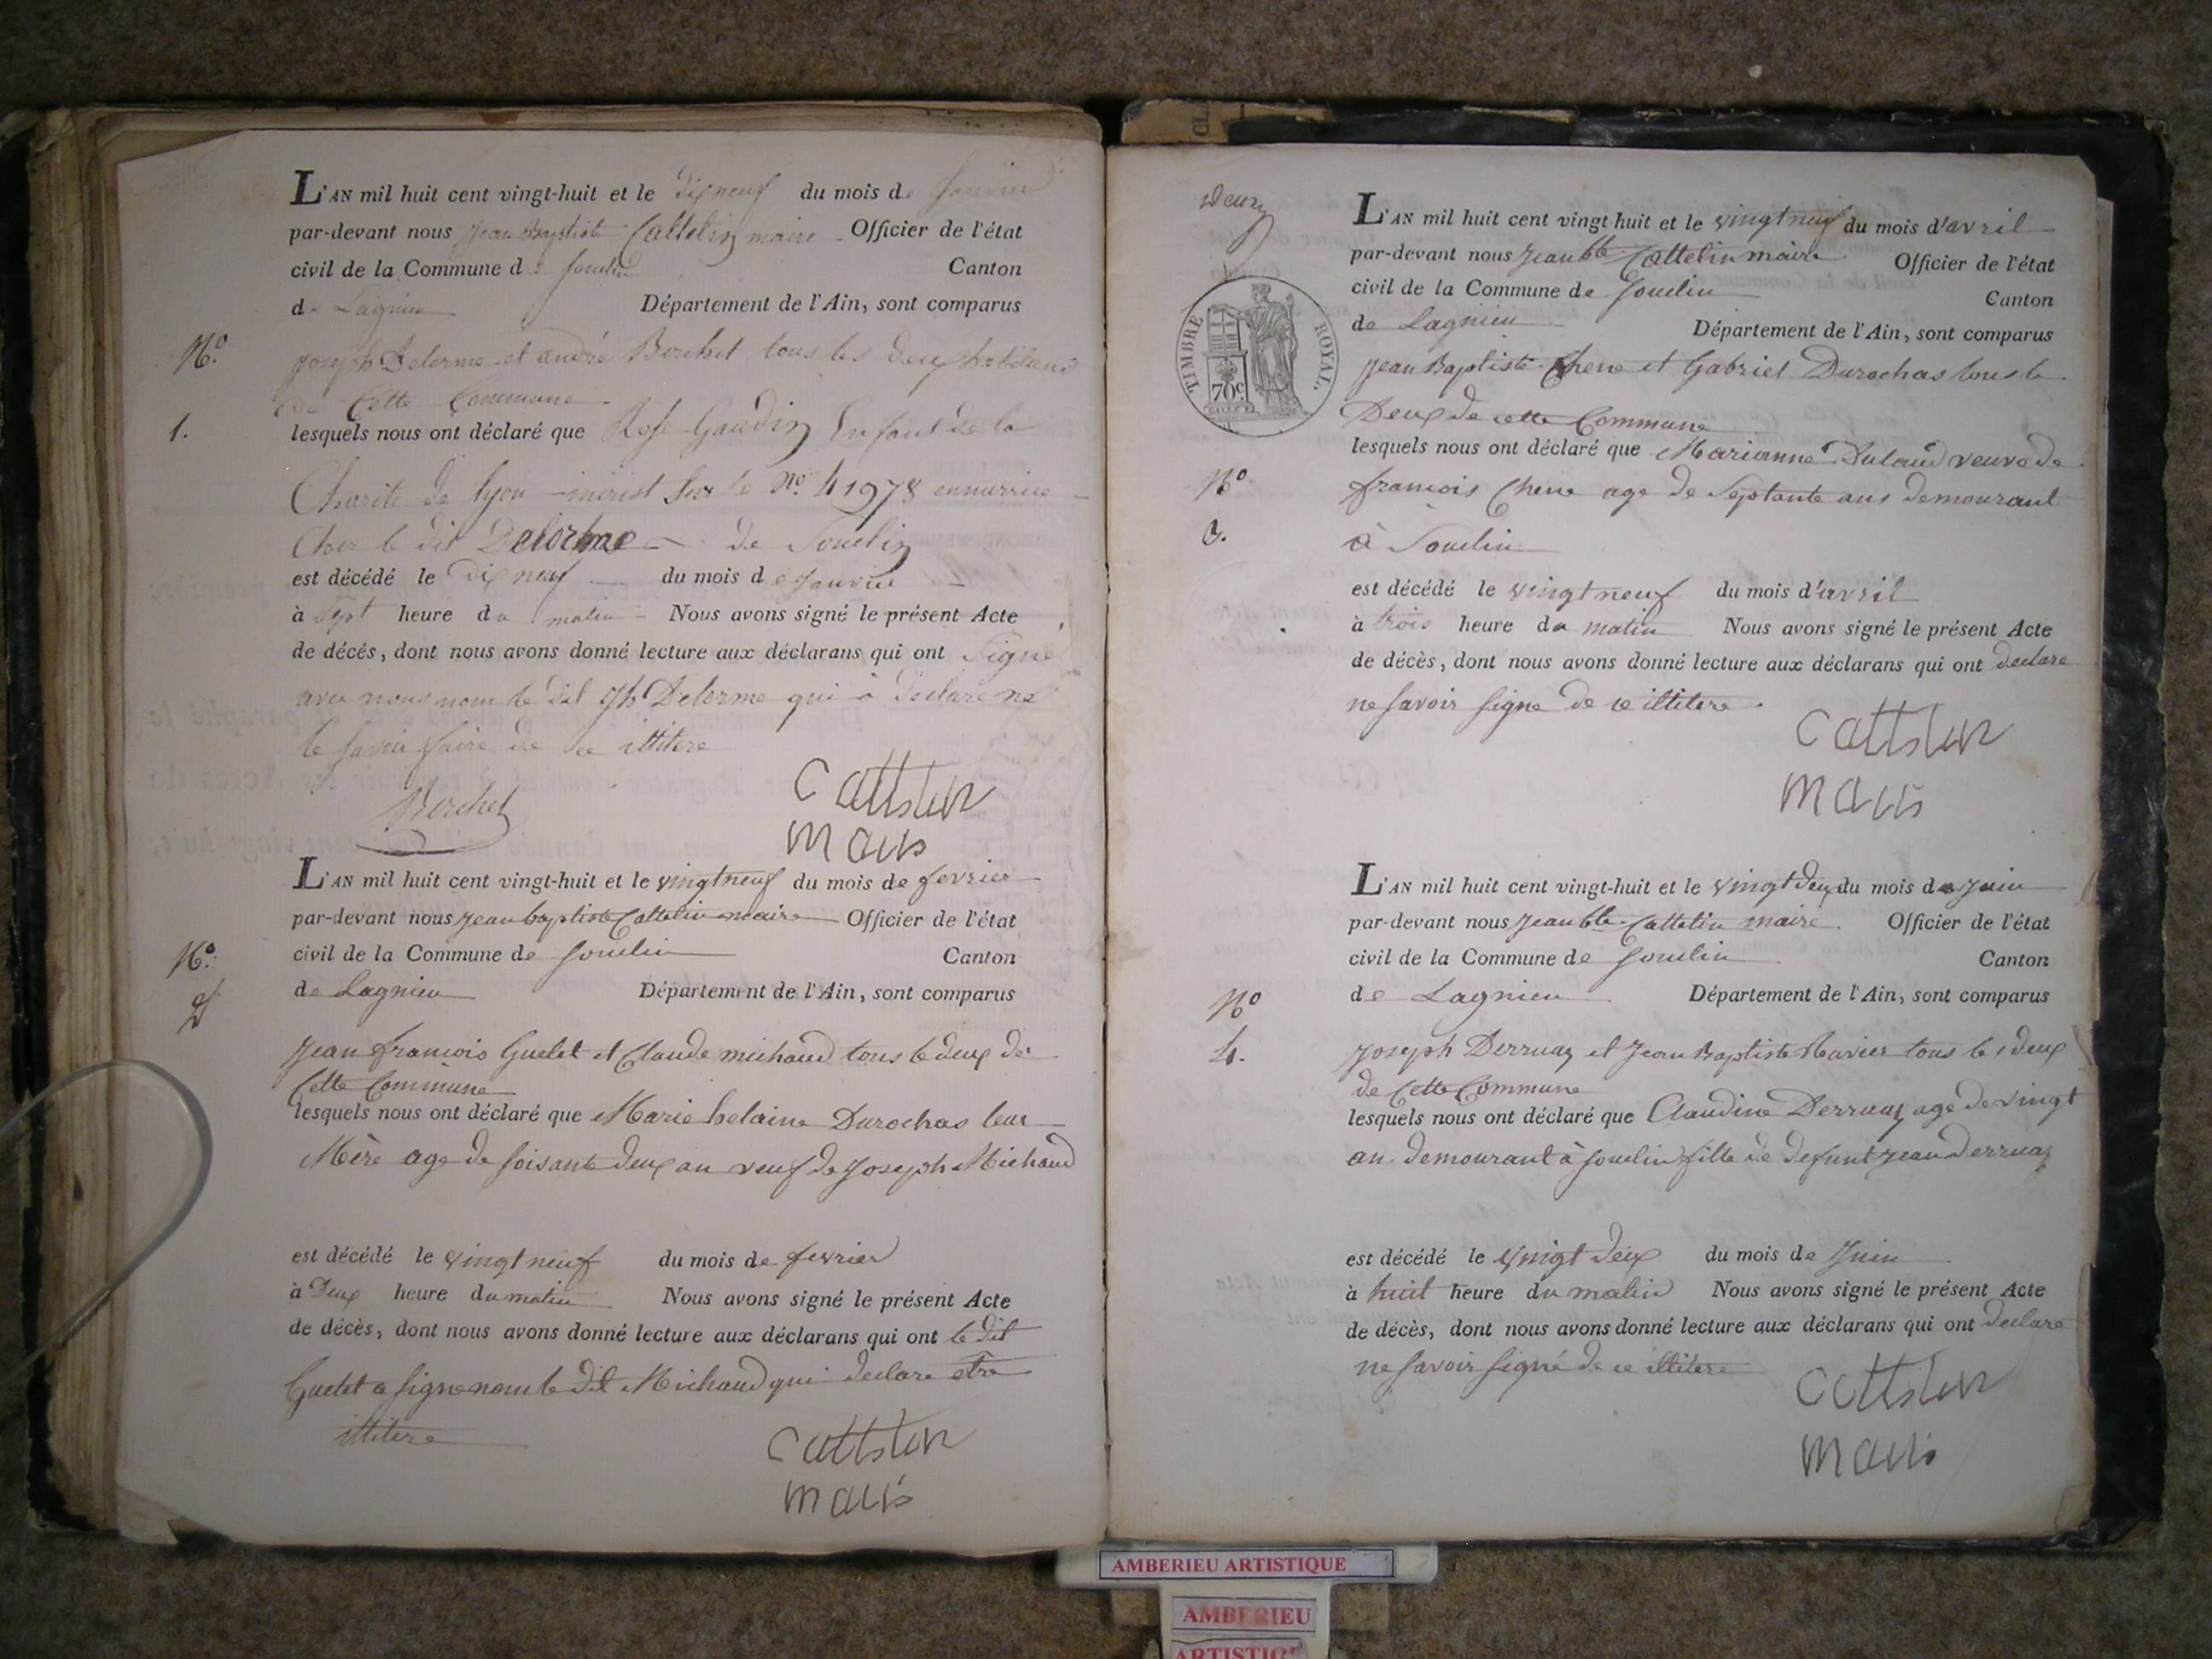 L'AN mil huit cent vingt-huit et le dix neuf du mois de Janvier
par-devant nous Jean Baptiste Cattelin maire Officier de l'état
civil de la Commune de Souclin Canton
de Lagnieu Département de l'Ain, sont comparus
No.
joseph Delorme et andré Berchet tous les deux habitans
de Cette Commune
1.
lesquels nous ont déclaré que Rose Gaudin Enfant de la
Charite de lyon inscrit sur le No. 41978 en nurrice
Cher le dit Delorme de Souclin
est décédé le dix neuf du mois de Janvier
à Sept heure du matin Nous avons signé le présent Acte
de décés, dont nous avons donné lecture aux déclarans qui ont Signé
avec nous nom le dit jh Delorme qui à declare ne
le savoir faire de ce illitere
Berchet
Cattelin
maire
L'AN mil huit cent vingt-huit et le vingt neuf du mois de fevrier
par-devant nous jean baptiste Cattelin maire Officier de l'état
civil de la Commune de Souclin Canton
No.
de Lagnieu Département de l'Ain, sont comparus
2
Jean francois Guelet et Claude michaud tous le deux de
Cette Commune
lesquels nous ont déclaré que Marie helaine Durochas leur
Mère age de soisante deux an veuf de Joseph Michaud
est décédé le vingt neuf du mois de fevrier
à Deux heure du matin Nous avons signé le présent Acte
de décès, dont nous avons donné lecture aux déclarans qui ont le dit
Guelet a signe nom le dit Michaud qui declare etre
illitere
Cattelin
maire
Deux
L'AN mil huit cent vingt huit et le vingt neuf du mois d'avril
par-devant nous Jean bte Cattelin maire Officier de l'état
civil de la Commune de Souclin Canton
de Lagnieu Département de l'Ain, sont comparus
TIMBRE ROYAL.
70c.
Jean Baptiste Chene et Gabriel Durochas tous le
Deux de cette Commune
lesquels nous ont déclaré que Marianne Dulaud veuve de
No
francois Chene age de Septante ans demourant
3.
à Souclin
est décédé le vingt neuf du mois d'avril
à trois heure du matin Nous avons signé le présent Acte
de décès, dont nous avons donné lecture aux déclarans qui ont declare
ne savoir signe de ce illitere.
Cattelin
maire
L'AN mil huit cent vingt-huit et le vingt deux du mois de Juin
par-devant nous Jean bte Cattelin maire. Officier de l'état
civil de la Commune de Souclin Canton
No
de Lagnieu Département de l'Ain, sont comparus
4.
Joseph Derruaz et Jean Baptiste Ravier tous les deux
de Cette Commune
lesquels nous ont déclaré que Claudine Derruaz age de vingt
an demourant à Souclin fille de defunt jean Derruaz
est décédé le vingt deux du mois de Juin
à huit heure du matin Nous avons signé le présent Acte
de décès, dont nous avons donné lecture aux déclarans qui ont declare
ne savoir signé de ce illitere
Cattelin
maire
AMBERIEU ARTISTIQUE
AMBERIEU
ARTISTIQUE